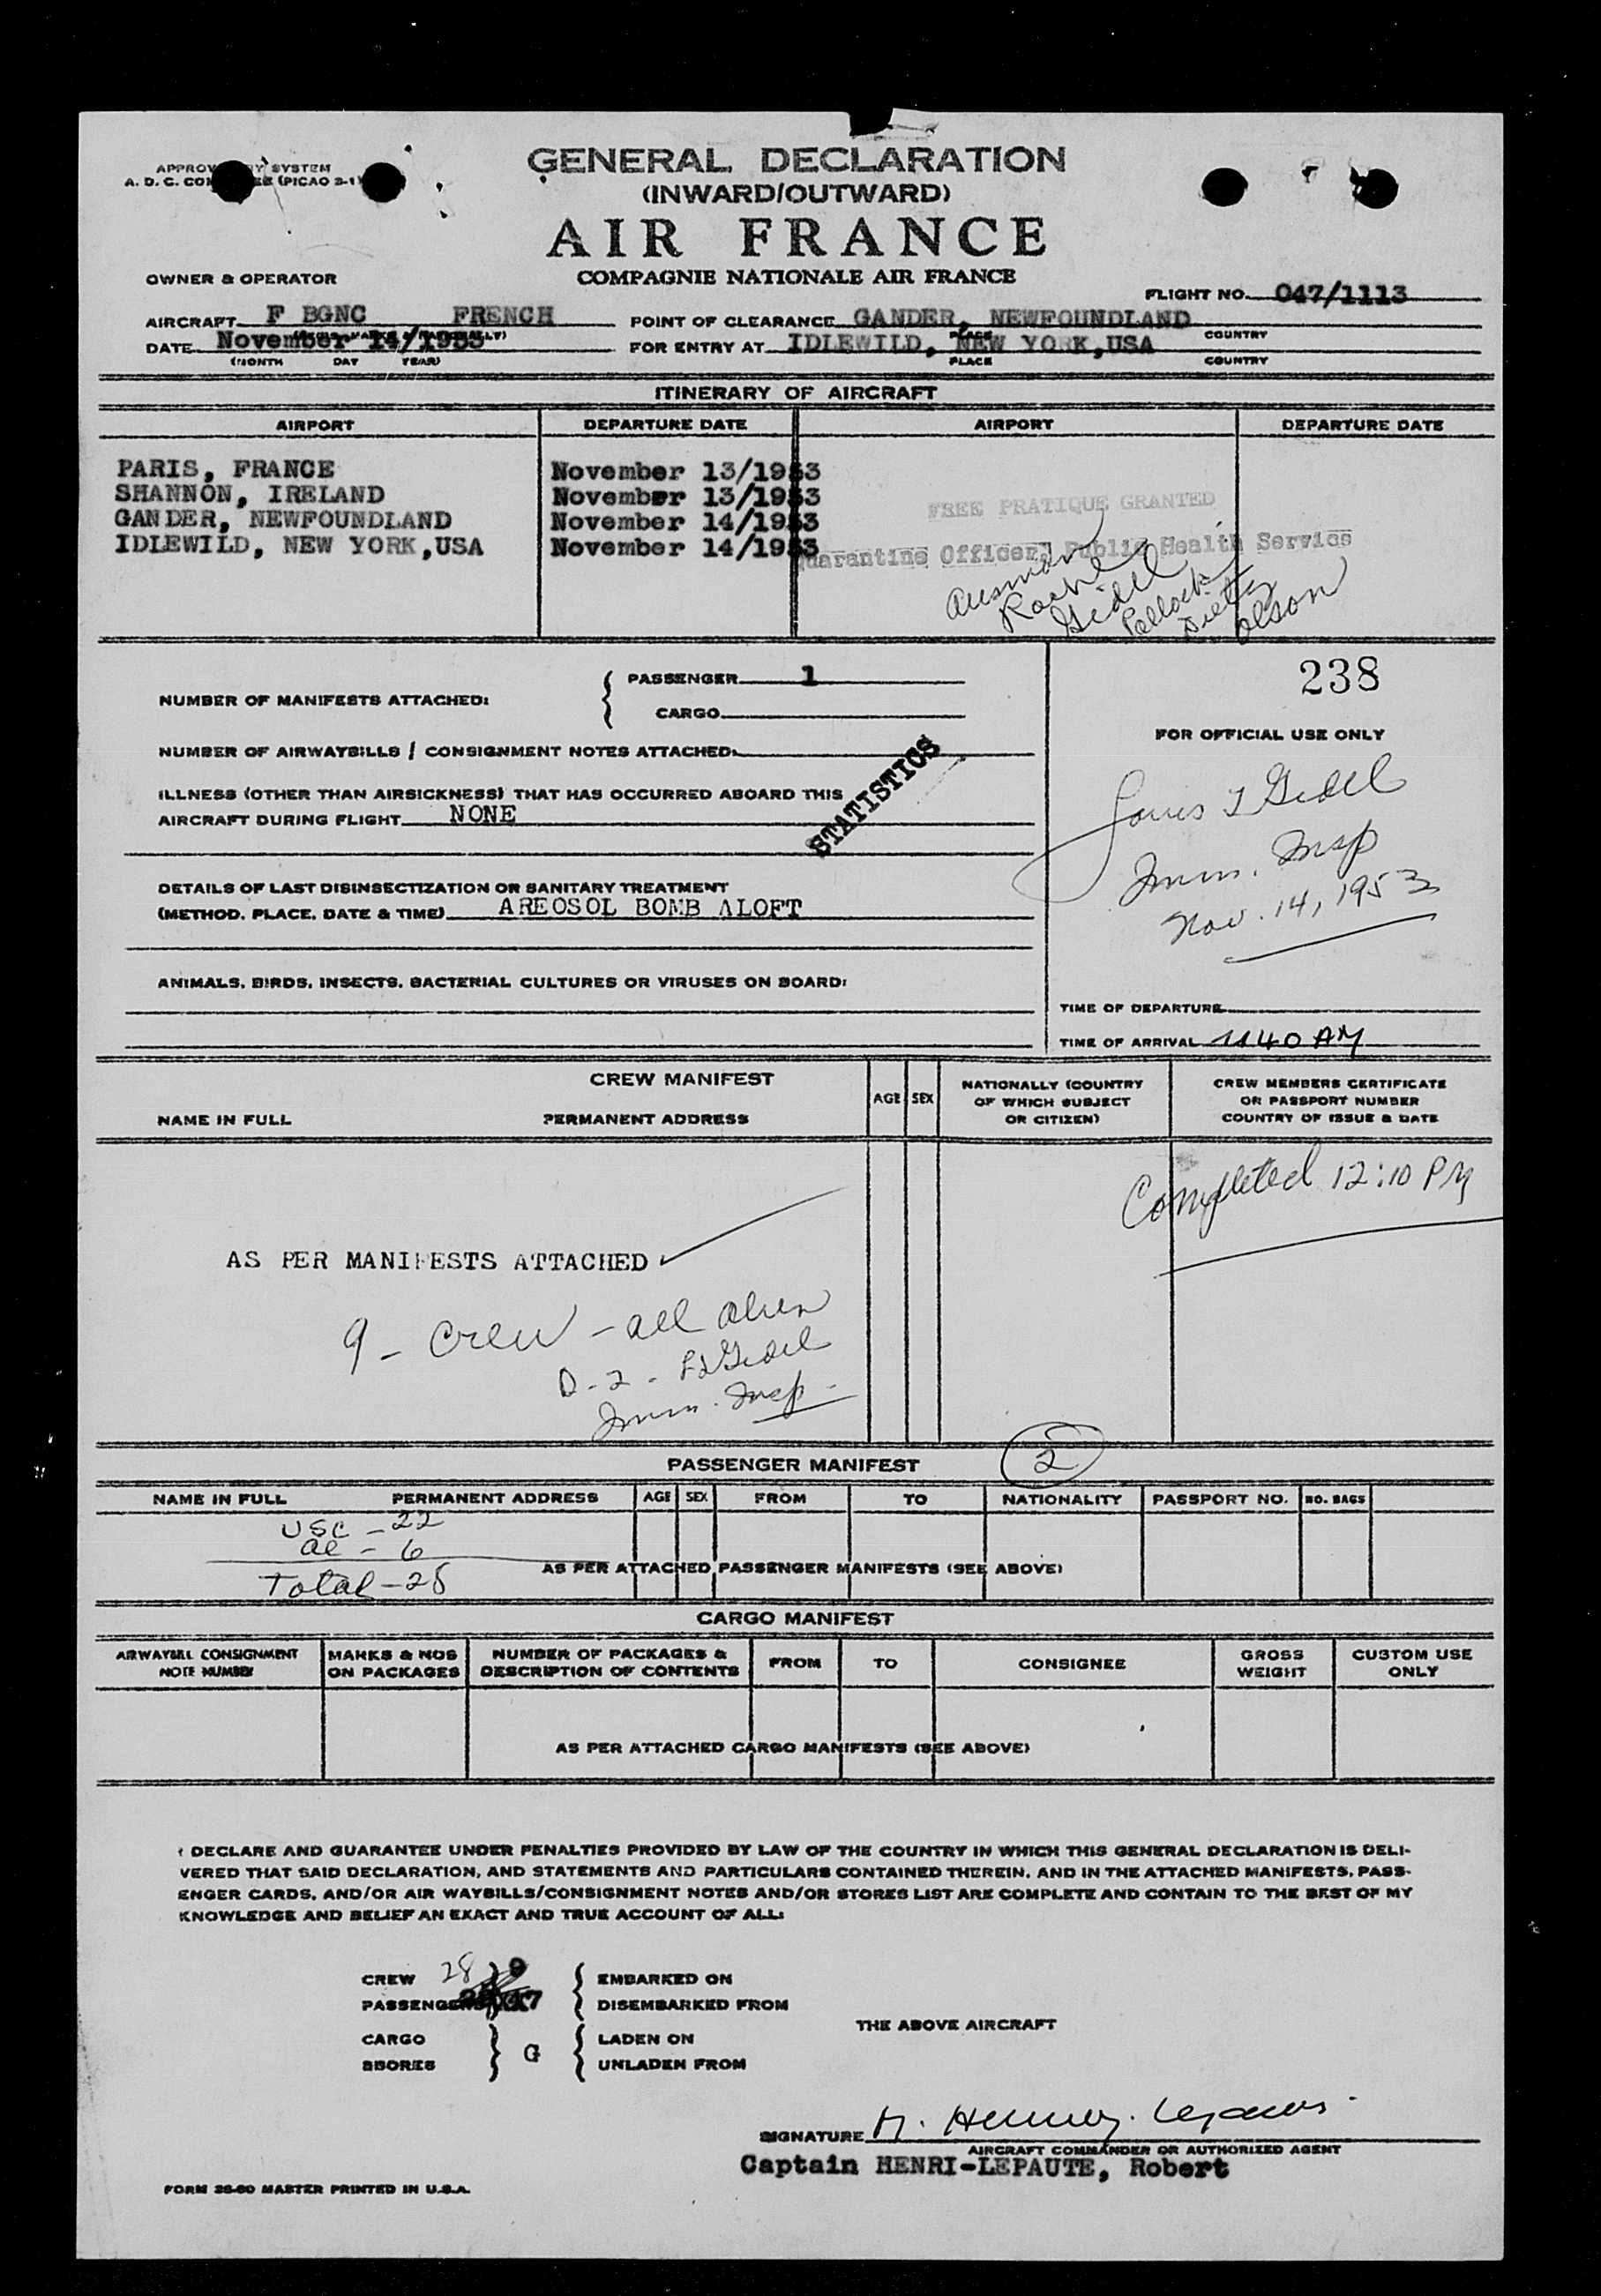 GENERAL DECLARATION
(INWARD/OUTWARD)
AIR FRANCE
COMPAGNIE NATIONALE AIR FRANCE
SYSTEM
A. D. C. (PICAO 2-1)
OWNER & OPERATOR
FLIGHT NO. 047/1113
AIRCRAFT F BGNC FRENCH
POINT OF CLEARANCE GANDER, NEWFOUNDLAND
PLACE COUNTRY
DATE November 14/1953
(MONTH DAY YEAR)
FOR ENTRY AT IDLEWILD, NEW YORK,USA
PLACE COUNTRY
ITINERARY OF AIRCRAFT
AIRPORT DEPARTURE DATE AIRPORT DEPARTURE DATE
PARIS, FRANCE November 13/1953
SHANNON, IRELAND November 13/1953
GANDER, NEWFOUNDLAND November 14/1953
IDLEWILD, NEW YORK,USA November 14/1953
FREE PRATIQUE GRANTED
Quarantine Officer, Public Health Service
Roche
Gidel
Pollock
Dietz
Olson
NUMBER OF MANIFESTS ATTACHED:
PASSENGER 1
CARGO
NUMBER OF AIRWAYBILLS / CONSIGNMENT NOTES ATTACHED:
STATISTICS
ILLNESS (OTHER THAN AIRSICKNESS) THAT HAS OCCURRED ABOARD THIS
AIRCRAFT DURING FLIGHT NONE
DETAILS OF LAST DISINSECTIZATION OR SANITARY TREATMENT
(METHOD, PLACE, DATE & TIME) AREOSOL BOMB ALOFT
ANIMALS, BIRDS, INSECTS, BACTERIAL CULTURES OR VIRUSES ON BOARD:
238
FOR OFFICIAL USE ONLY
Louis I Gidel
Imm. Insp
Nov. 14, 1953
TIME OF DEPARTURE
TIME OF ARRIVAL 1140 AM
CREW MANIFEST
NAME IN FULL PERMANENT ADDRESS AGE SEX
NATIONALLY (COUNTRY
OF WHICH SUBJECT
OR CITIZEN)
CREW MEMBERS CERTIFICATE
OR PASSPORT NUMBER
COUNTRY OF ISSUE & DATE
Completed 12:10 PM
AS PER MANIFESTS ATTACHED
9 - Crew - all alien
D-2 - LI Gidel
Imm. Insp -
PASSENGER MANIFEST 2
NAME IN FULL PERMANENT ADDRESS AGE SEX FROM TO NATIONALITY PASSPORT NO. NO. BAGS
USC - 22
al - 6
Total - 28
AS PER ATTACHED PASSENGER MANIFESTS (SEE ABOVE)
CARGO MANIFEST
AIRWAYBILL CONSIGNMENT
NOTE NUMBER
MARKS & NOS
ON PACKAGES
NUMBER OF PACKAGES &
DESCRIPTION OF CONTENTS
FROM TO CONSIGNEE
GROSS
WEIGHT
CUSTOM USE
ONLY
AS PER ATTACHED CARGO MANIFESTS (SEE ABOVE)
I DECLARE AND GUARANTEE UNDER PENALTIES PROVIDED BY LAW OF THE COUNTRY IN WHICH THIS GENERAL DECLARATION IS DELI-
VERED THAT SAID DECLARATION, AND STATEMENTS AND PARTICULARS CONTAINED THEREIN, AND IN THE ATTACHED MANIFESTS, PASS-
ENGER CARDS, AND/OR AIR WAYBILLS/CONSIGNMENT NOTES AND/OR STORES LIST ARE COMPLETE AND CONTAIN TO THE BEST OF MY
KNOWLEDGE AND BELIEF AN EXACT AND TRUE ACCOUNT OF ALL:
CREW 28 9 EMBARKED ON
PASSENGERS DISEMBARKED FROM
THE ABOVE AIRCRAFT
CARGO LADEN ON
G
SBORES UNLADEN FROM
SIGNATURE
AIRCRAFT COMMANDER OR AUTHORIZED AGENT
Captain HENRI-LEPAUTE, Robert
FORM 28-60 MASTER PRINTED IN U.S.A.